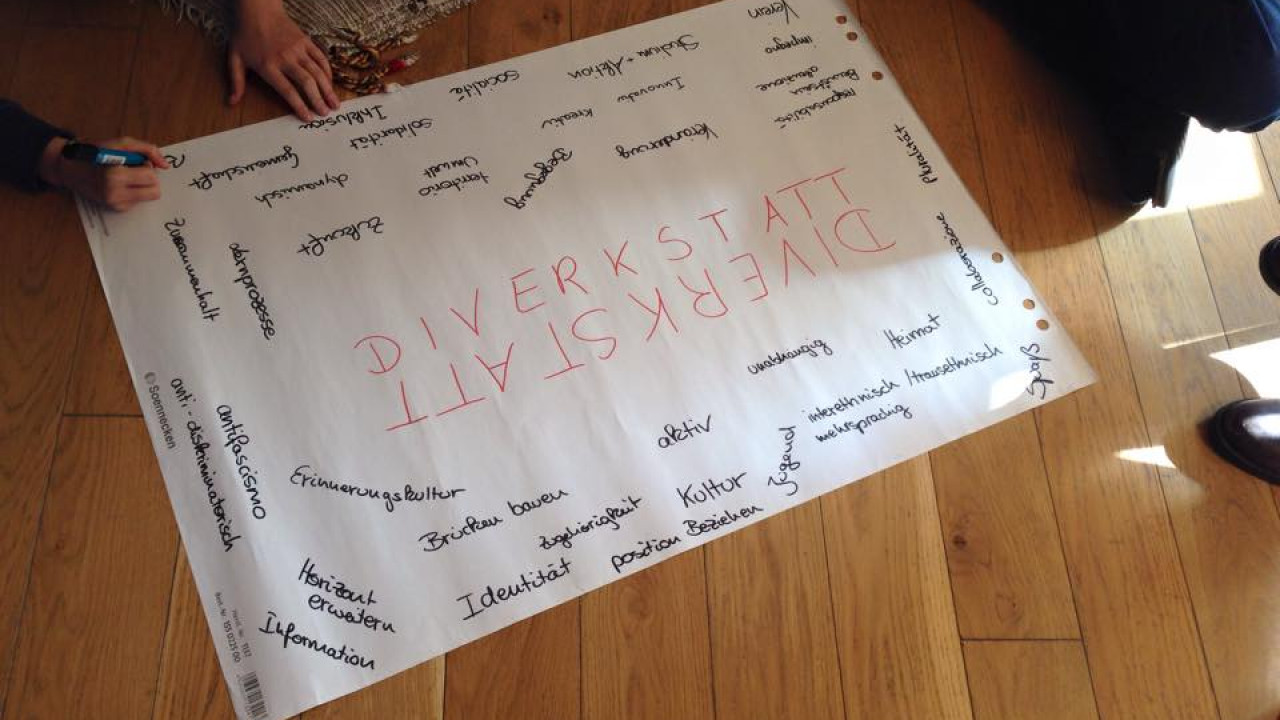 Verein
impegno
Studium + Aktion
socialità
Bewusstsein
Innovativ
responsabilità
Kreativ
Inklusion
solidarität
Veränderung
Gemeinschaft
Begegnung
Umwelt
territorio
dynamisch
Zukunft
Pluralität
collaborazione
Zusammenhalt
Gruppprozesse
DIVERKSTATT
DIVERKSTATT
unabhängig
Heimat
Spaß
interethnisch / transethnisch
mehrsprachig
Jugend
aktiv
Kultur
position Beziehen
zugehörigkeit
Identität
Brücken bauen
Erinnerungskultur
antifascismo
anti-diskriminatorisch
Horizont
erweitern
Information
© Soennecken